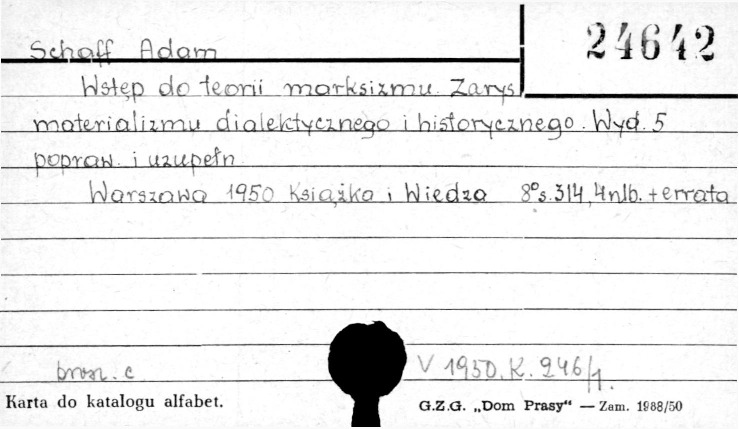 Schaff Adam
24642
Wstęp do teorii marksizmu. Zarys
materializmu dialektycznego i historycznego. Wyd. 5
popraw. i uzupełn.
Warszawa 1950 Książka i Wiedza 8° s. 314, 4 nlb. + errata
brosz. c
V 1950. K. 246/1.
Karta do katalogu alfabet.
G.Z.G. „Dom Prasy“ — Zam. 1988/50